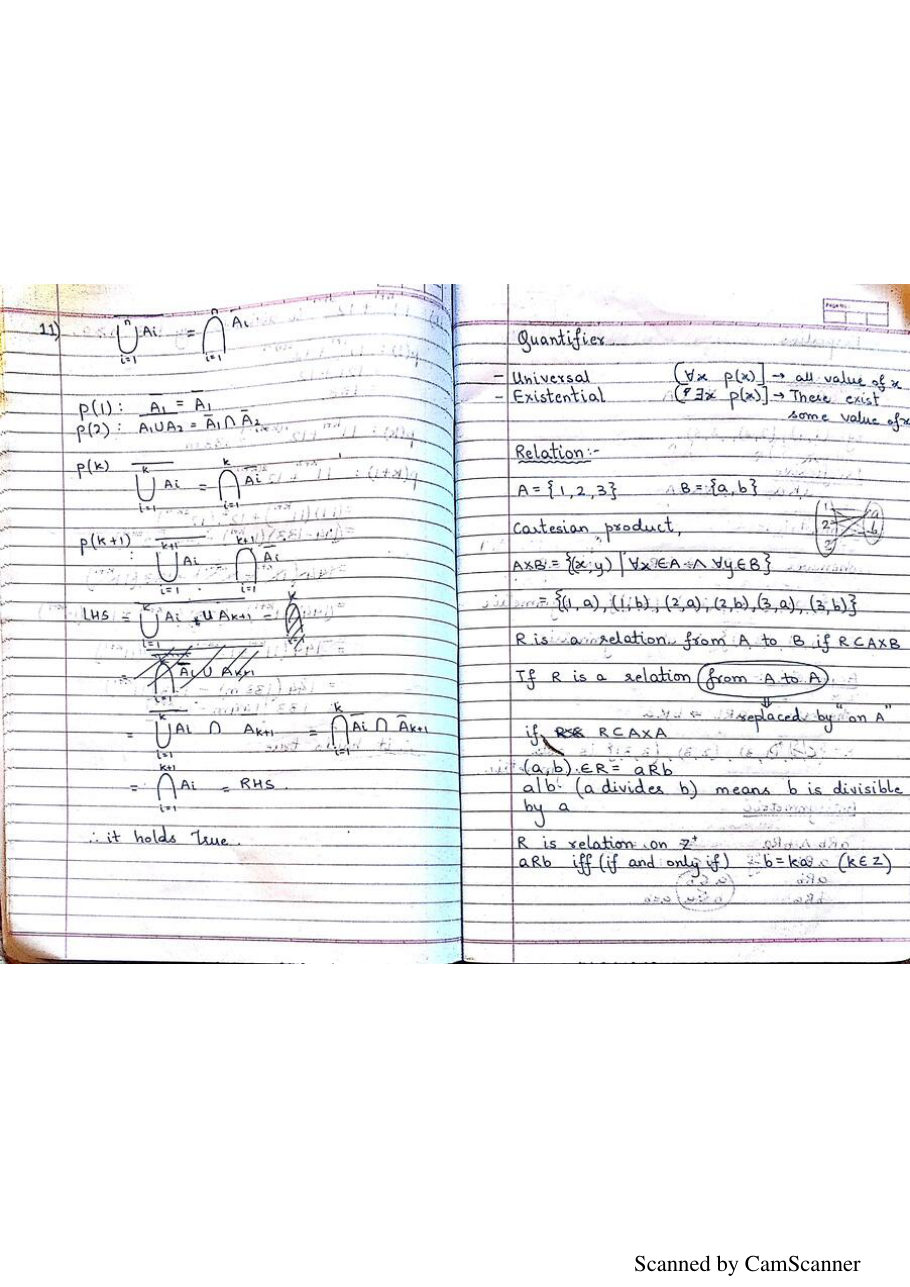 11) $\overline{\bigcup_{i=1}^{n} A_i} = \bigcap_{i=1}^{n} \overline{A_i}$
p(1) : $\overline{A_1} = \overline{A_1}$
p(2) : $\overline{A_1 \cup A_2} = \overline{A}_1 \cap \overline{A}_2$
p(k) $\overline{\bigcup_{i=1}^{k} A_i} = \bigcap_{i=1}^{k} \overline{A_i}$
p(k+1) : $\overline{\bigcup_{i=1}^{k+1} A_i} = \bigcap_{i=1}^{k+1} \overline{A_i}$
LHS = $\overline{\bigcup_{i=1}^{k} A_i \cup A_{k+1}}$ =
= $\overline{\bigcup_{i=1}^{k} A_i} \cap \overline{A_{k+1}} = \bigcap_{i=1}^{k} \overline{A_i} \cap \overline{A}_{k+1}$
= $\bigcap_{i=1}^{k+1} A_i$ = RHS
∴ it holds True.
Quantifier
- Universal [∀x p(x)] → all value of x
- Existential [∃x p(x)] → There exist
some value of x
Relation :-
A = {1, 2, 3} B = {a, b}
1 2 3 a b
Cartesian product,
A×B = {(x, y) | ∀x ∈ A ∧ ∀y ∈ B}
= {(1, a), (1, b), (2, a), (2, b), (3, a), (3, b)}
R is a relation from A to B if R ⊂ A×B
If R is a relation (from A to A)
⇓
replaced by "on A"
if R ⊂ A×A
(a, b) ∈ R = aRb
a|b (a divides b) means b is divisible
by a
R is relation on Z⁺
aRb iff (if and only if) b = ka (k ∈ Z)
Scanned by CamScanner